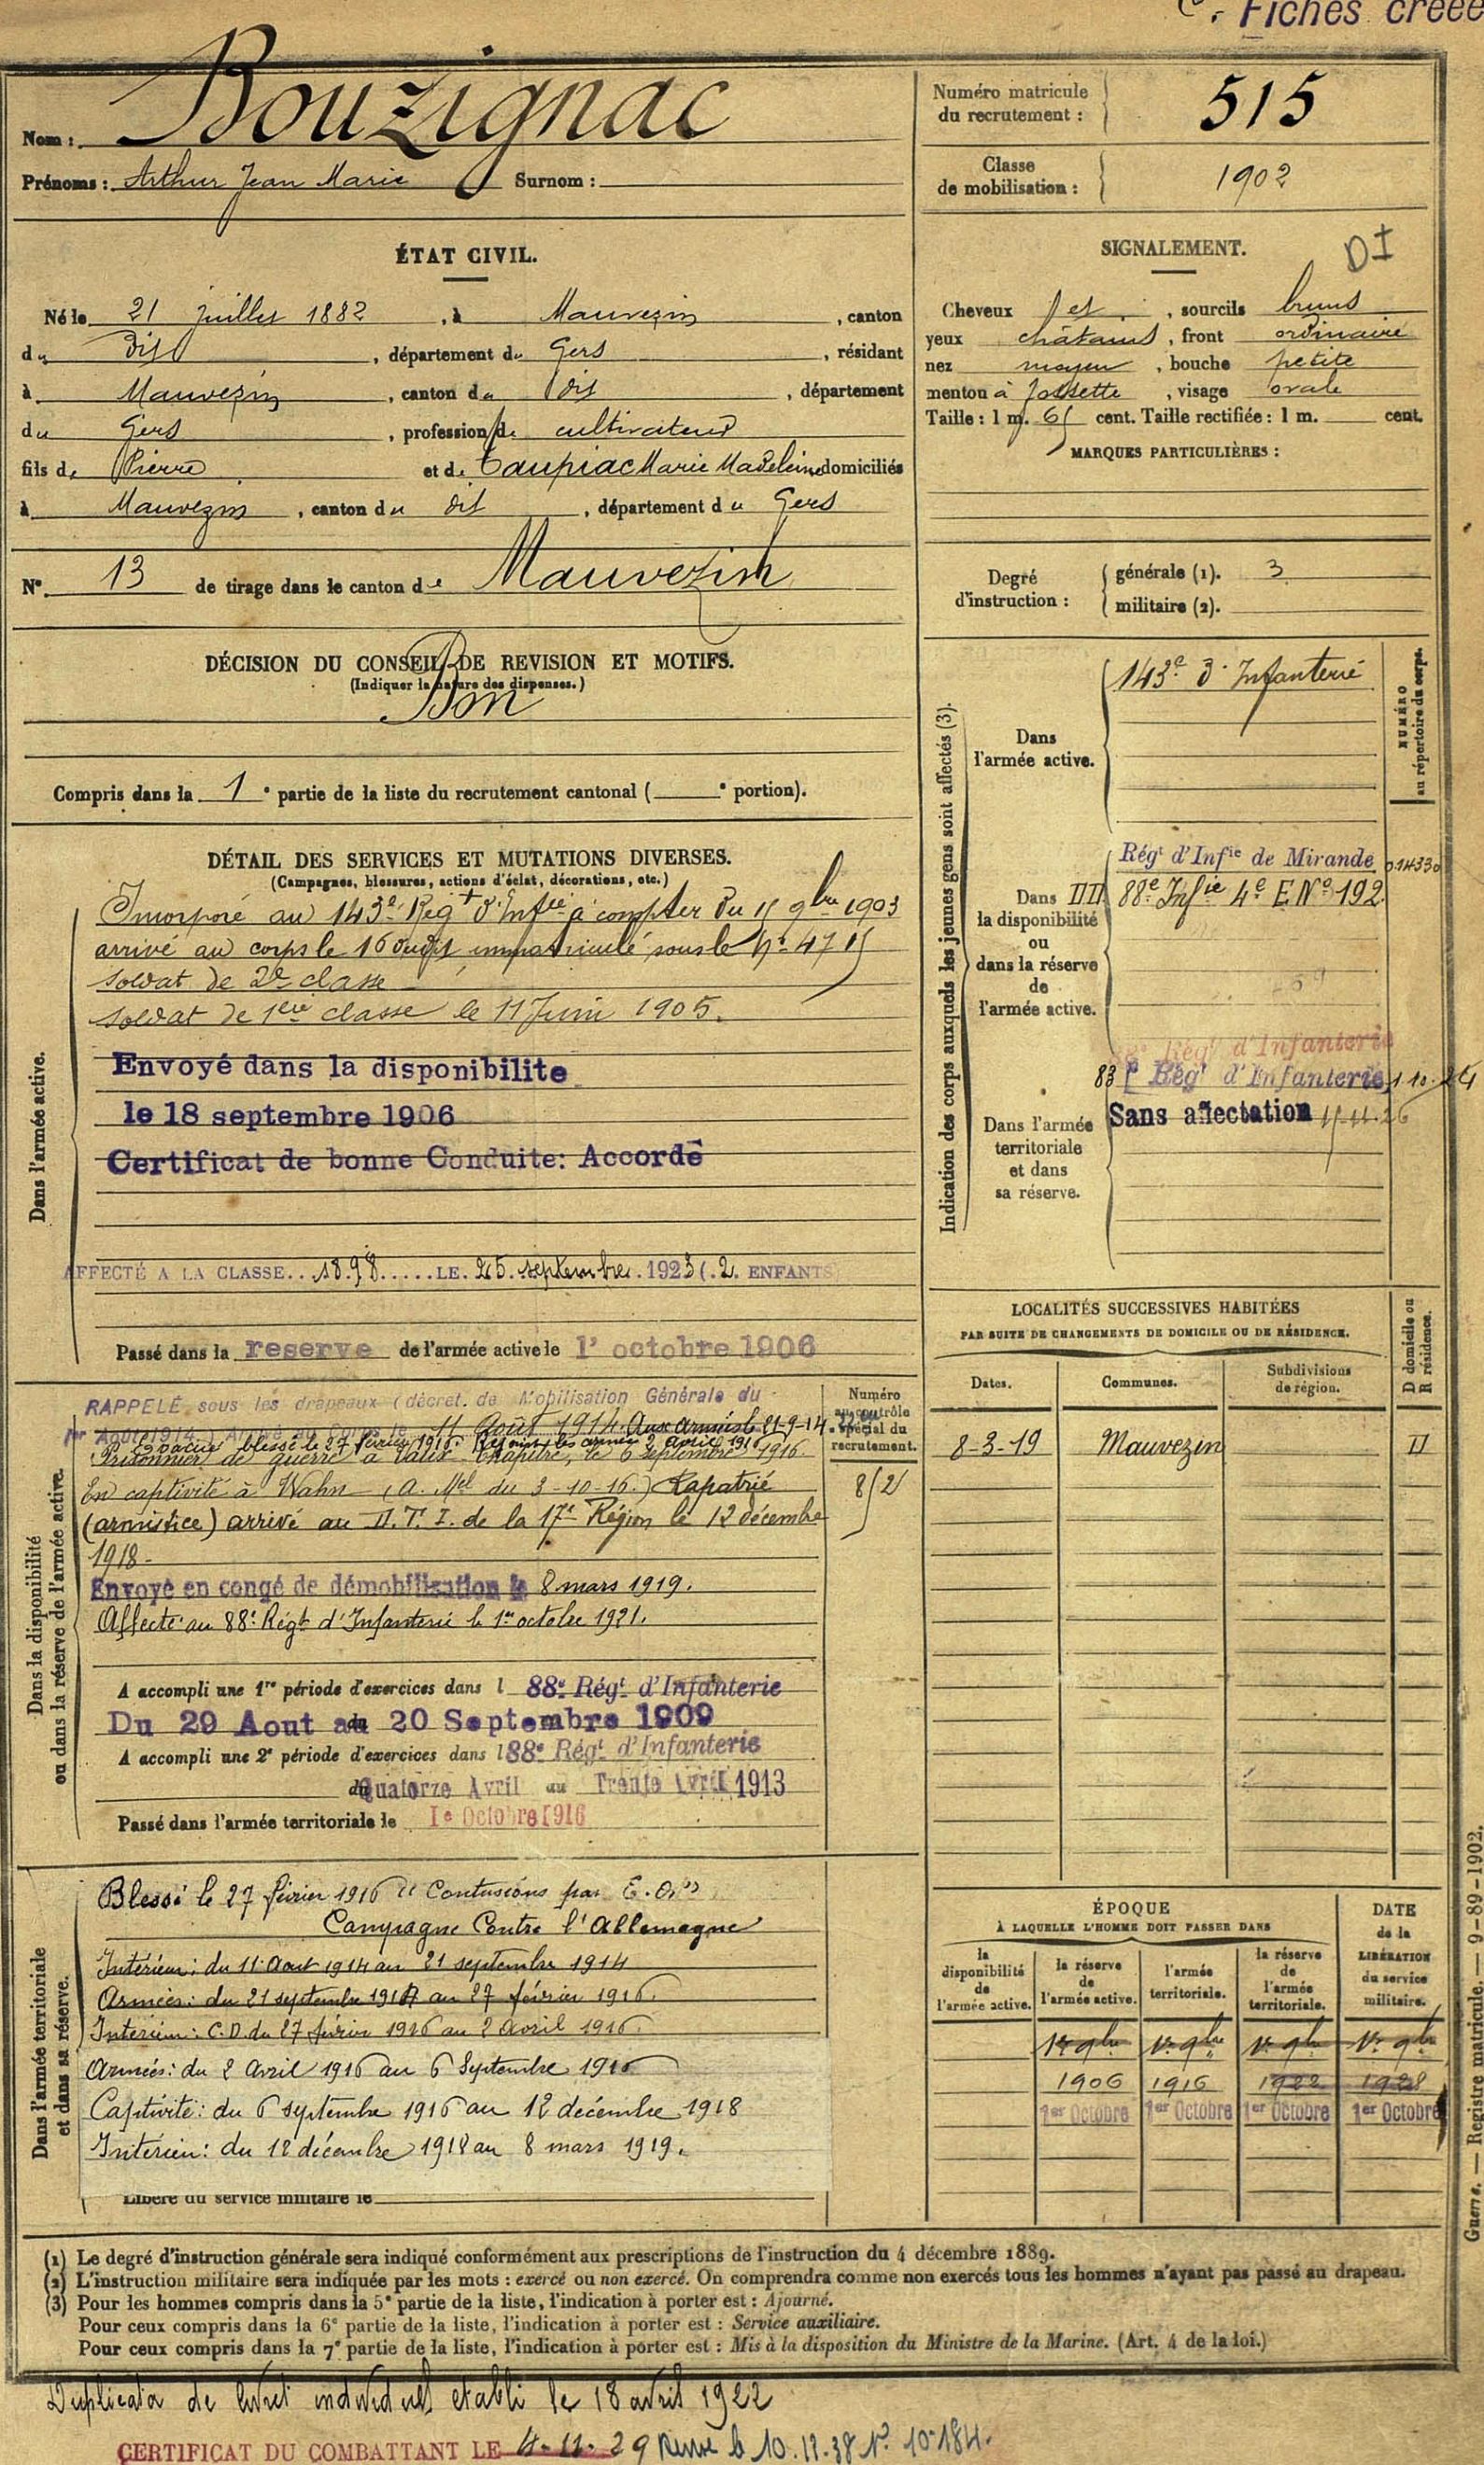 Fiches créée
Nom : Bouzignac
Prénoms : Arthur Jean Marie Surnom :
Numéro matricule du recrutement : 515
Classe de mobilisation : 1902
ÉTAT CIVIL.
Né le 21 juillet 1882, à Mauvezin, canton
du dit, département du Gers, résidant
à Mauvezin, canton du dit, département
du Gers, profession de cultivateur
fils de Pierre et de Taupiac Marie Madeleine domiciliés
à Mauvezin, canton du dit, département du Gers
N° 13 de tirage dans le canton de Mauvezin
SIGNALEMENT.
DI
Cheveux et, sourcils bruns
yeux châtains, front ordinaire
nez moyen, bouche petite
menton à fossette, visage ovale
Taille : 1 m. 65 cent. Taille rectifiée : 1 m. cent.
MARQUES PARTICULIÈRES :
Degré d'instruction : générale (1). 3
militaire (2).
DÉCISION DU CONSEIL DE REVISION ET MOTIFS.
(Indiquer la nature des dispenses.)
Bon
Compris dans la 1e partie de la liste du recrutement cantonal ( e portion).
DÉTAIL DES SERVICES ET MUTATIONS DIVERSES.
(Campagnes, blessures, actions d'éclat, décorations, etc.)
Dans l'armée active.
Incorporé au 143e Régt d'Infie à compter du 15 9bre 1903
arrivé au corps le 16 dudit immatriculé sous le N° 4715
soldat de 2e classe
soldat de 1ere classe le 11 Juin 1905.
Envoyé dans la disponibilite
le 18 septembre 1906
Certificat de bonne Conduite : Accordé
AFFECTÉ A LA CLASSE.. 1898 ..... LE. 25 septembre. 1923 (.2. ENFANTS
Passé dans la reserve de l'armée active le 1r octobre 1906
Dans la disponibilité ou dans la réserve de l'armée active.
RAPPELÉ sous les drapeaux (décret de Mobilisation Générale du
1er Août 1914) 11 Août 1914. Aux armées le 21-9-14
Evacué blessé le 27 février 1916. Rejoint les armées 2 avril 1916
Prisonnier de guerre à Vaux-Chapitre, le 6 septembre 1916
En captivité à Wahn (A. Mel du 3-10-16.) Rapatrié
(armistice) arrivé au D.T.I. de la 17e Région le 12 décembre
1918.
Envoyé en congé de démobilisation le 8 mars 1919.
Affecté au 88e Régt d'Infanterie le 1er octobre 1921.
Numéro au contrôle spécial du recrutement.
852
A accompli une 1re période d'exercices dans l 88e Régt d'Infanterie
Du 29 Aout au 20 Septembre 1909
A accompli une 2e période d'exercices dans l 88e Régt d'Infanterie
du Quatorze Avril au Trente Avril 1913
Passé dans l'armée territoriale le 1e Octobre 1916
Dans l'armée territoriale et dans sa réserve.
Blessé le 27 février 1916 "Contusions par E.O."
Campagne Contre l'Allemagne
Intérieur : du 11 Aout 1914 au 21 septembre 1914
Armées : du 21 septembre 1914 au 27 février 1916.
Intérieur : C.D. du 27 février 1916 au 2 avril 1916.
Armées : du 2 avril 1916 au 6 Septembre 1916
Captivité : du 6 septembre 1916 au 12 décembre 1918
Intérieur : du 12 décembre 1918 au 8 mars 1919.
Libéré du service militaire le
Indication des corps auxquels les jeunes gens sont affectés (3).
NUMÉRO au répertoire du corps.
Dans l'armée active.
143e d'Infanterie
Dans la disponibilité ou dans la réserve de l'armée active.
Régt d'Infie de Mirande 01433
88e Infie 4e E N° 192
Dans l'armée territoriale et dans sa réserve.
Régt d'Infanterie
83e Régt d'Infanterie
Sans affectation
LOCALITÉS SUCCESSIVES HABITÉES
PAR SUITE DE CHANGEMENTS DE DOMICILE OU DE RÉSIDENCE.
Dates. Communes. Subdivisions de région. D domicile ou R résidence.
8-3-19 Mauvezin D
ÉPOQUE
À LAQUELLE L'HOMME DOIT PASSER DANS
DATE de la LIBÉRATION du service militaire.
la disponibilité de l'armée active.
la réserve de l'armée active.
l'armée territoriale.
la réserve de l'armée territoriale.
1er 9bre 1er 9bre 1er 9bre 1er 9bre
1906 1916 1922 1928
1er Octobre 1er Octobre 1er Octobre 1er Octobre
(1) Le degré d'instruction générale sera indiqué conformément aux prescriptions de l'instruction du 4 décembre 1889.
(2) L'instruction militaire sera indiquée par les mots : exercé ou non exercé. On comprendra comme non exercés tous les hommes n'ayant pas passé au drapeau.
(3) Pour les hommes compris dans la 5e partie de la liste, l'indication à porter est : Ajourné.
Pour ceux compris dans la 6e partie de la liste, l'indication à porter est : Service auxiliaire.
Pour ceux compris dans la 7e partie de la liste, l'indication à porter est : Mis à la disposition du Ministre de la Marine. (Art. 4 de la loi.)
Guerre. — Registre matricule. — 9-89-1902.
Duplicata de livret individuel établi le 18 avril 1922
CERTIFICAT DU COMBATTANT LE 4-11-29 Renvé le 10.12.38 N° 10184.